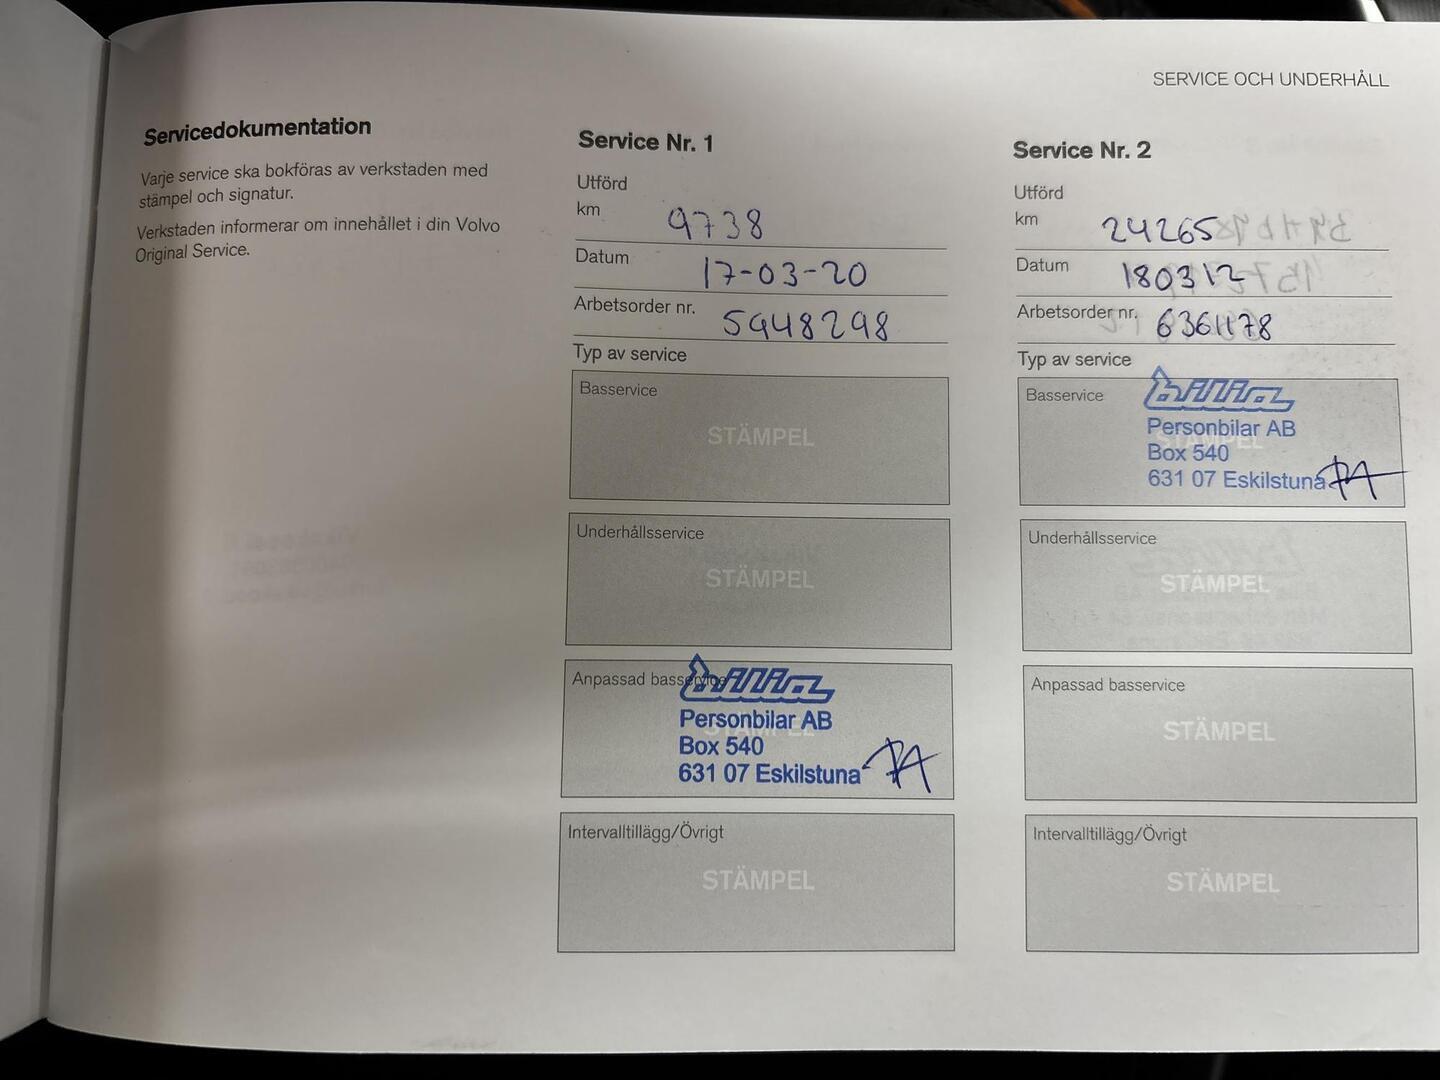 SERVICE OCH UNDERHÅLL
Servicedokumentation
Varje service ska bokföras av verkstaden med
stämpel och signatur.
Verkstaden informerar om innehållet i din Volvo
Original Service.
Service Nr. 1
Utförd
km 9738
Datum 17-03-20
Arbetsorder nr. 5948298
Typ av service
Basservice
STÄMPEL
Underhållsservice
STÄMPEL
Anpassad basservice
bilia
Personbilar AB
Box 540
631 07 Eskilstuna
Intervalltillägg/Övrigt
STÄMPEL
Service Nr. 2
Utförd
km 24265
Datum 180312
Arbetsorder nr. 6361178
Typ av service
Basservice
bilia
Personbilar AB
Box 540
631 07 Eskilstuna
Underhållsservice
STÄMPEL
Anpassad basservice
STÄMPEL
Intervalltillägg/Övrigt
STÄMPEL